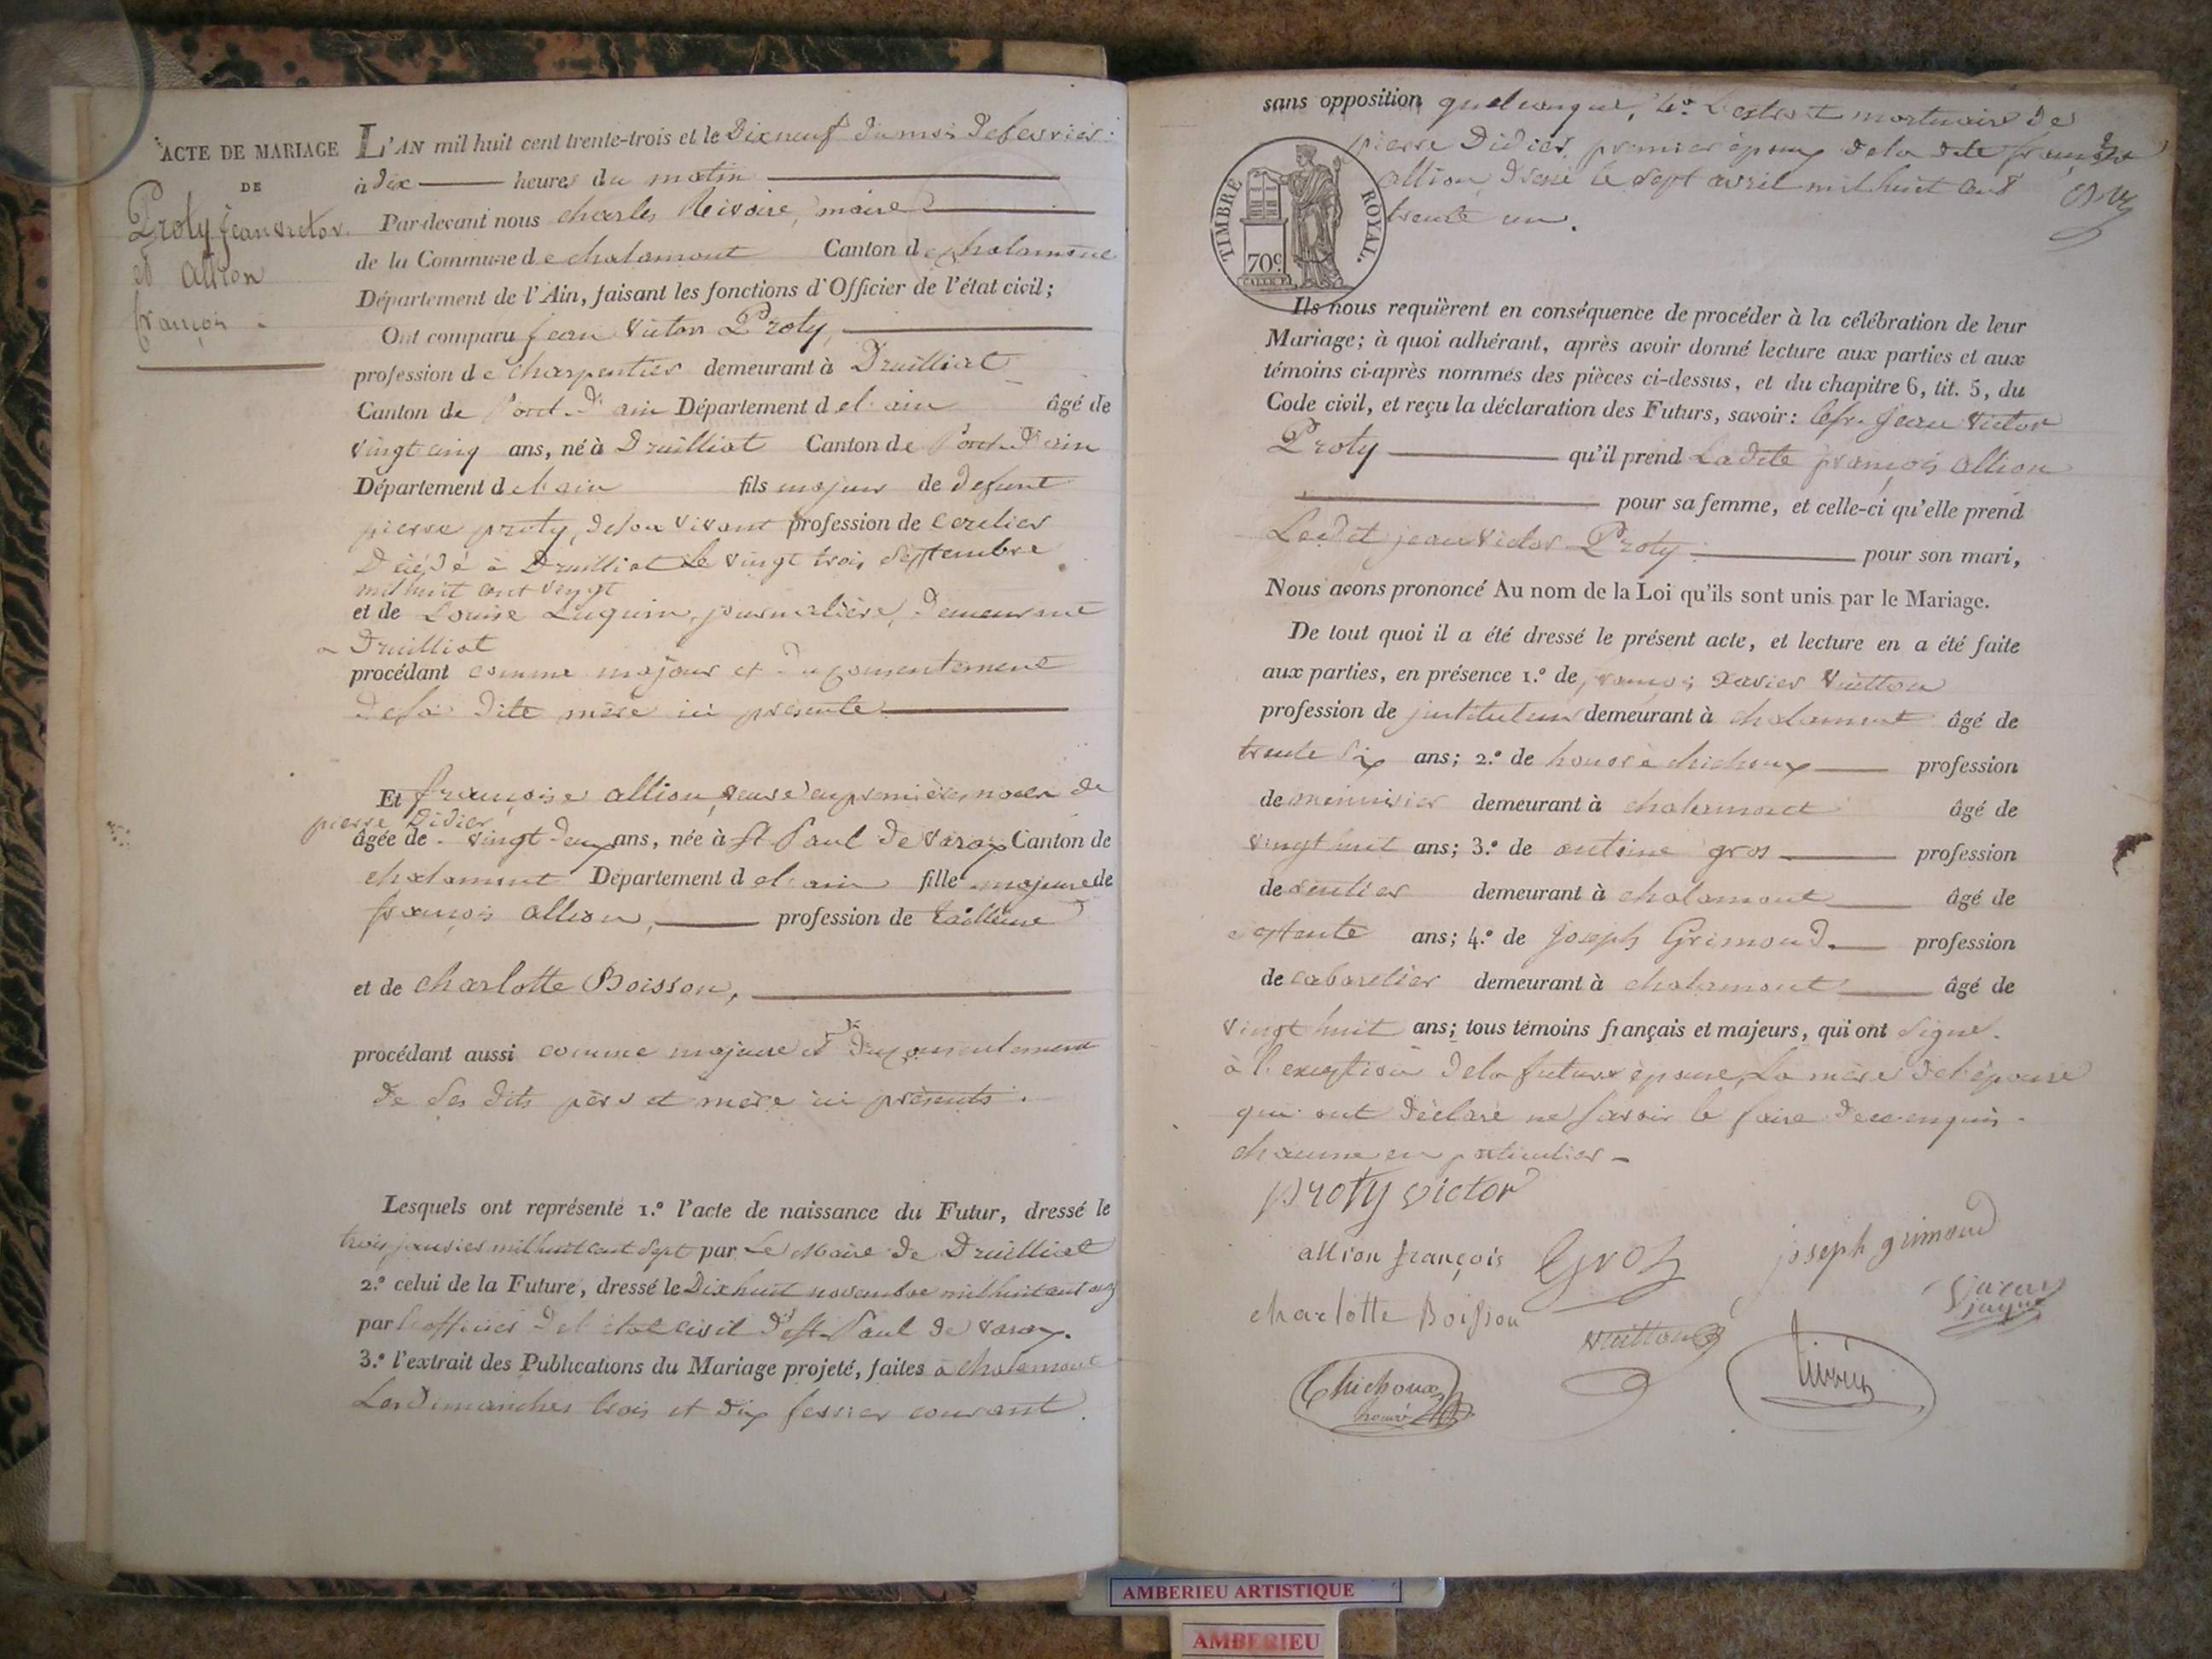 ACTE DE MARIAGE
DE
Proty Jean victor
et Allion
françois
L'AN mil huit cent trente-trois et le Dix neuf du mois de fevrier
à dix heures du matin
Par-devant nous charles Rivoire, maire
de la Commune de chalamont Canton de chalamont
Département de l'Ain, faisant les fonctions d'Officier de l'état civil;
Ont comparu jean victor Proty,
profession de charpentier demeurant à Druilliat
Canton de Pont-d'ain Département de l'ain âgé de
vingt cinq ans, né à Druilliat Canton de Pont-D'ain
Département de l'ain fils majeur de defunt
pierre proty, de son vivant profession de
Décédé à Druilliat Le vingt trois Septembre
mil huit cent vingt
et de Louise Luquin, journalière, demeurant
a Druilliat
procédant comme majeur et du consentement
de sa dite mère ici presente
Et françoise allion, veuve en premières noces de
pierre Didier,
âgée de vingt-deux ans, née à St Paul de Varax Canton de
chalamont Département de l'ain fille majeure de
françois allion, profession de tailleur
et de charlotte Boisson,
procédant aussi comme majeure et du consentement
de ses dits père et mère ici présents.
Lesquels ont représenté 1.º l'acte de naissance du Futur, dressé le
trois janvier mil huit cent sept par Le Maire de Druilliat
2.º celui de la Future, dressé le Dix huit novembre mil huit cent dix
par l'officier de l'etat civil de St Paul de Varax.
3.º l'extrait des Publications du Mariage projeté, faites à chalamont
Les Dimanches trois et dix fevrier courant.
sans opposition quelconque, 4º L'extrait mortuaire de
pierre Didier, premier époux de la dite françoise
allion, Dressé le sept avril mil huit cent
trente un.
TIMBRE ROYAL.
70c
Ils nous requièrent en conséquence de procéder à la célébration de leur
Mariage; à quoi adhérant, après avoir donné lecture aux parties et aux
témoins ci-après nommés des pièces ci-dessus, et du chapitre 6, tit. 5, du
Code civil, et reçu la déclaration des Futurs, savoir: Jean Victor
Proty qu'il prend La dite françois allion
pour sa femme, et celle-ci qu'elle prend
Ledit jean victor Proty pour son mari,
Nous avons prononcé Au nom de la Loi qu'ils sont unis par le Mariage.
De tout quoi il a été dressé le présent acte, et lecture en a été faite
aux parties, en présence 1.º de françois Xavier Vuitton
profession de jnstituteur demeurant à chalamont âgé de
trente six ans; 2.º de honoré chichoux profession
de menuisier demeurant à chalamont âgé de
vingt huit ans; 3.º de antoine gros profession
de rentier demeurant à chalamont âgé de
ans; 4.º de joseph Grimoud profession
de cabaretier demeurant à chalamont âgé de
vingt huit ans; tous témoins français et majeurs, qui ont signé
à l'exception de la future épouse, La mère de l'épouse
qui ont déclaré ne savoir le faire de ce enquis
chacune en particulier
proty victor
allion françois Gros joseph grimoud
charlotte Boisson
vuitton
Chichoux
honoré
AMBERIEU ARTISTIQUE
AMBERIEU